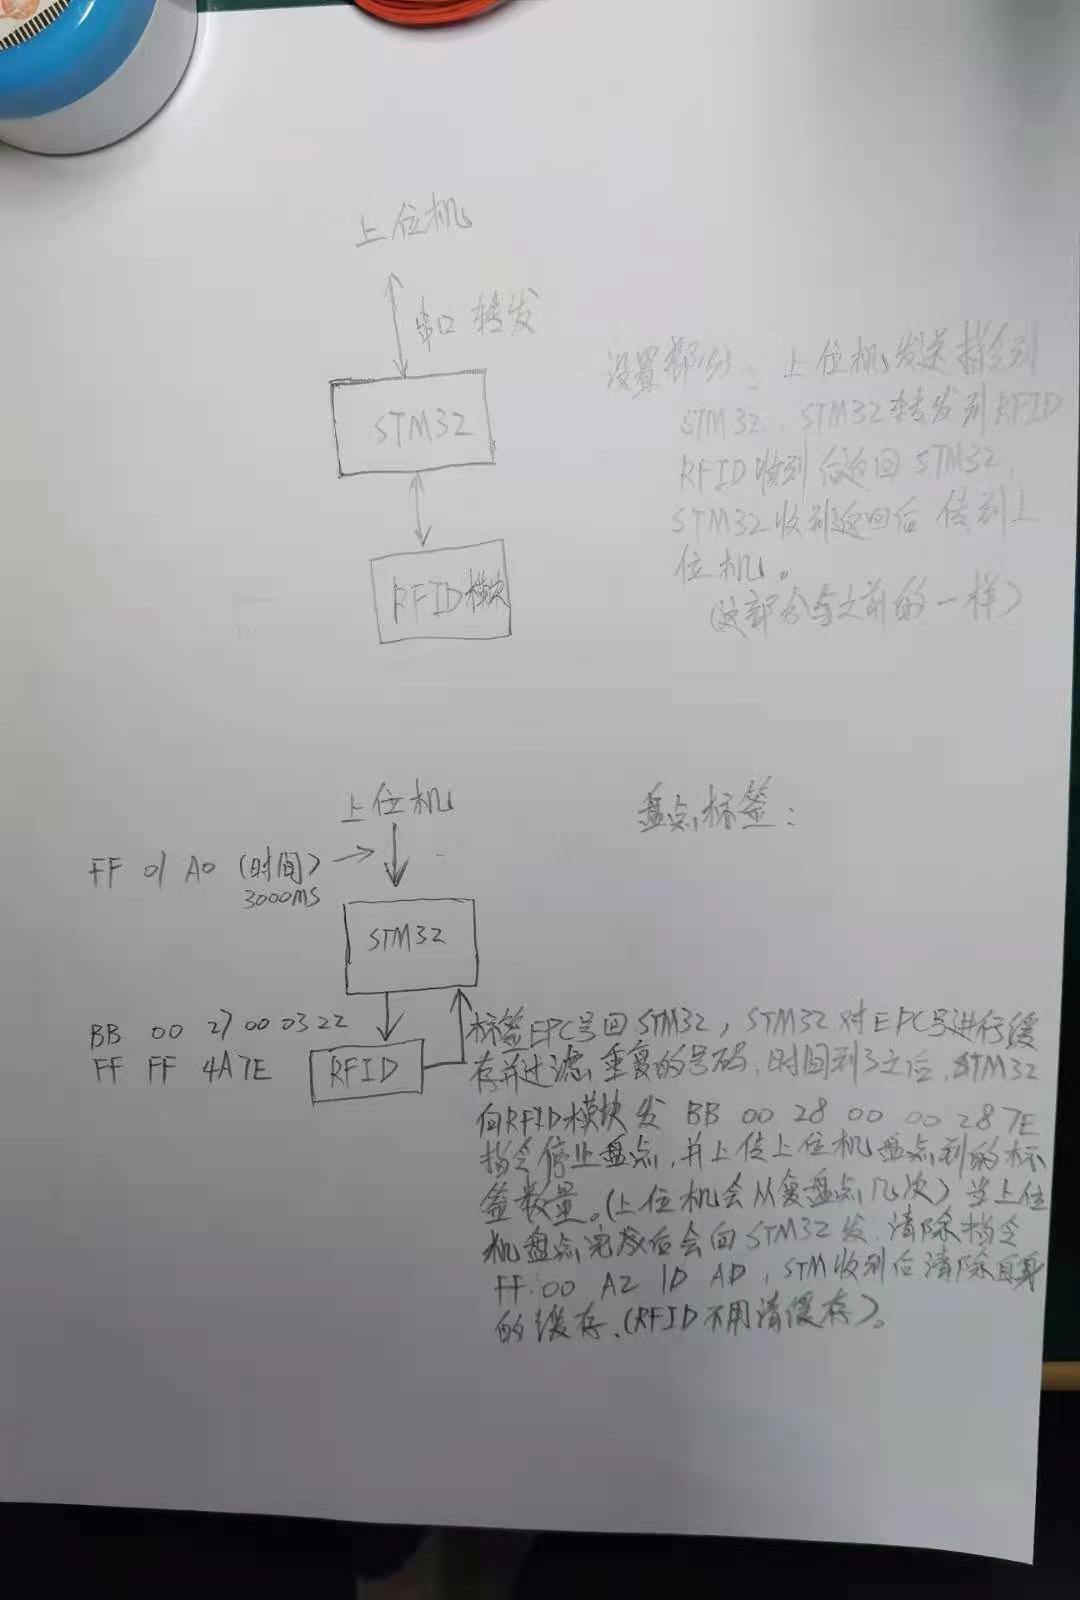 上位机
串口 转发
STM32
RFID模块
设置部分: 上位机发送指令到
STM32, STM32转发到RFID
RFID收到后返回STM32,
STM32收到返回后传到上
位机。
(这部分与之前的一样)
上位机
FF 01 A0 (时间)
3000MS
STM32
BB 00 27 00 03 22
FF FF 4A 7E
RFID
盘点标签:
标签EPC号回STM32, STM32对EPC号进行缓
存并过滤重复的号码,时间到了之后,STM32
向RFID模块发 BB 00 28 00 00 28 7E
指令停止盘点,并上传上位机盘点到的标
签数量。(上位机会从复盘点几次)当上位
机盘点完成后会向STM32发,清除指令
FF 00 A2 1D AD, STM收到后清除自身
的缓存,(RFID不用清缓存)。